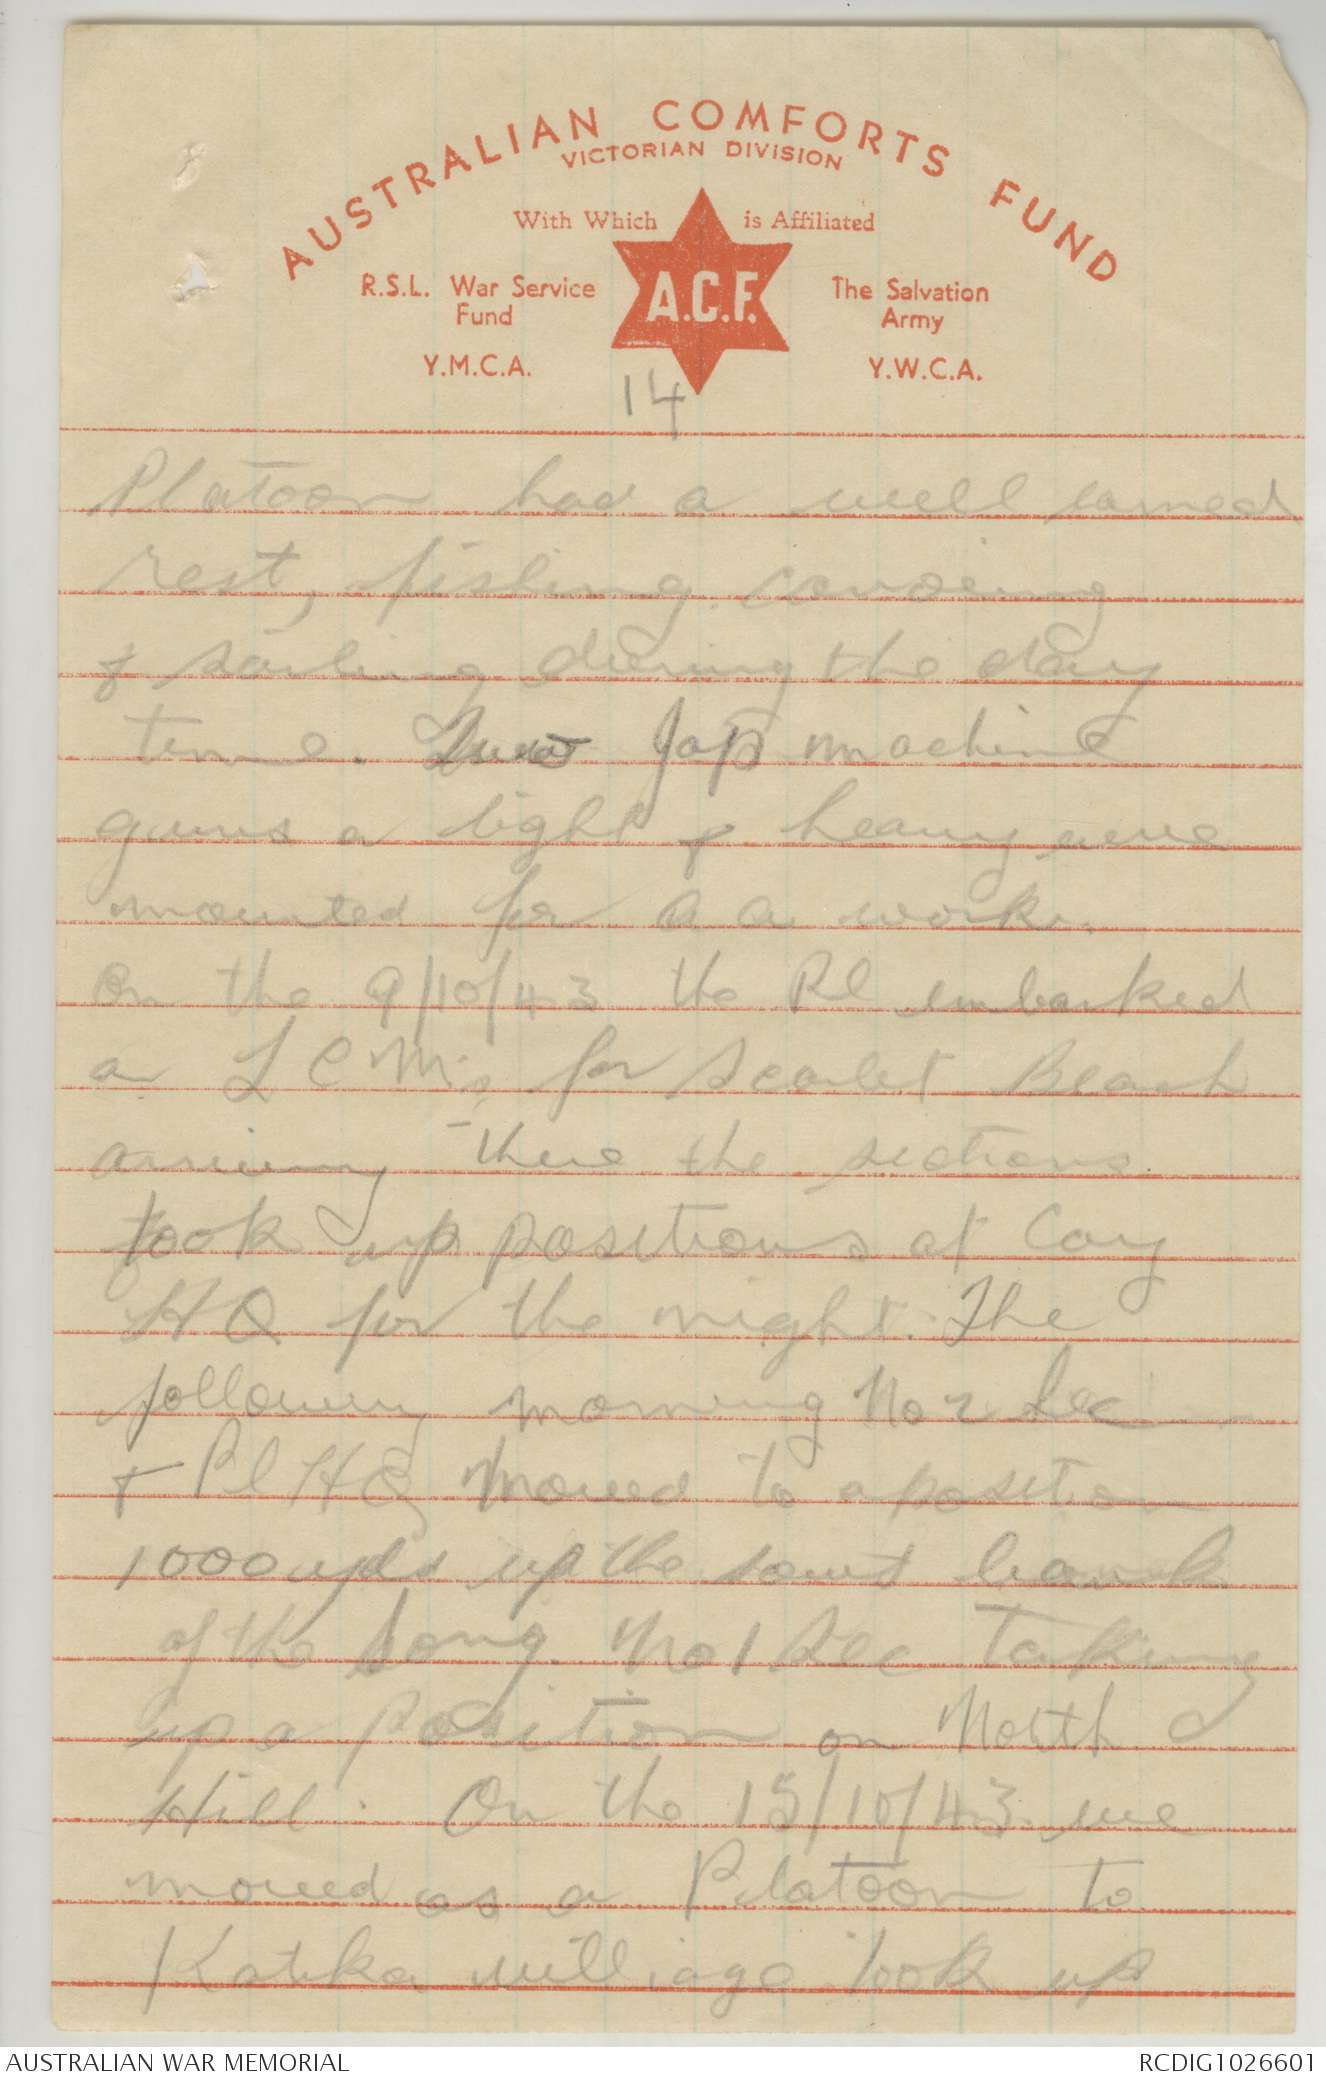 AUSTRALIAN COMFORTS FUND
VICTORIAN DIVISION
With Which is Affiliated
A.C.F.
R.S.L. War Service
Fund
The Salvation
Army
Y.M.C.A.
Y.W.C.A.
14
Platoon had a well earned
rest, fishing. canoeing
& sailing during the day
time. Two Jap machine
guns a light & heavy were
mounted for a a work.
On the 9/10/43 the Pl embarked
on L C M's for Scarlet Beach
arriving there the sections
took up positions at Coy
HQ for the night. The
following morning No 2 Sec
+ Pl HQ moved to a position
1000 yds up the bank
of the Song. No 1 Sec Taking
up a position on North
Hill. On the 15/10/43 we
moved as a Platoon to
Katika villiage took up
AUSTRALIAN WAR MEMORIAL
RCDIG1026601